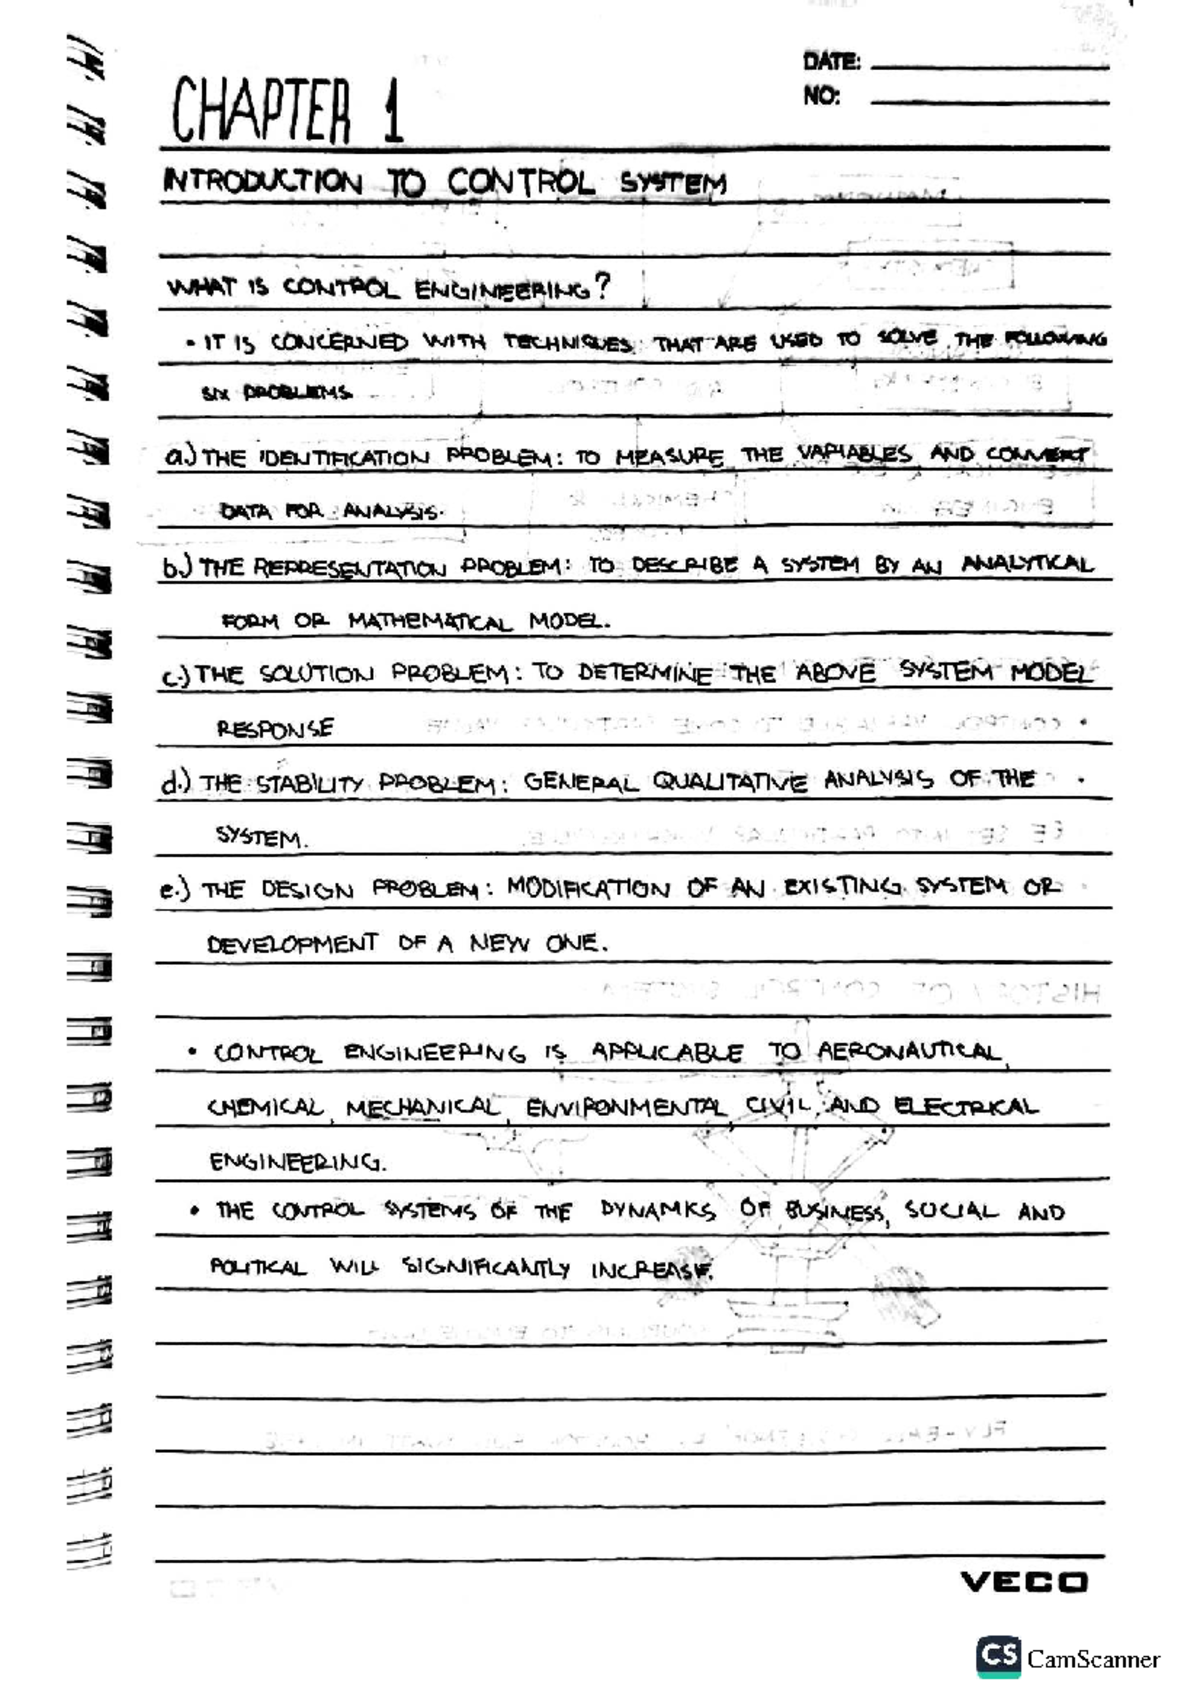 DATE:
NO:
CHAPTER 1
INTRODUCTION TO CONTROL SYSTEM
WHAT IS CONTROL ENGINEERING?
• IT IS CONCERNED WITH TECHNIQUES THAT ARE USED TO SOLVE THE FOLLOWING
SIX PROBLEMS.
a.) THE IDENTIFICATION PROBLEM: TO MEASURE THE VARIABLES AND CONVERT
DATA FOR ANALYSIS.
b.) THE REPRESENTATION PROBLEM: TO DESCRIBE A SYSTEM BY AN ANALYTICAL
FORM OR MATHEMATICAL MODEL.
c.) THE SOLUTION PROBLEM: TO DETERMINE THE ABOVE SYSTEM MODEL
RESPONSE
d.) THE STABILITY PROBLEM: GENERAL QUALITATIVE ANALYSIS OF THE
SYSTEM.
e.) THE DESIGN PROBLEM: MODIFICATION OF AN EXISTING SYSTEM OR
DEVELOPMENT OF A NEW ONE.
• CONTROL ENGINEERING IS APPLICABLE TO AERONAUTICAL,
CHEMICAL, MECHANICAL, ENVIRONMENTAL CIVIL, AND ELECTRICAL
ENGINEERING.
• THE CONTROL SYSTEMS OF THE DYNAMICS OF BUSINESS, SOCIAL AND
POLITICAL WILL SIGNIFICANTLY INCREASE.
VECO
CS CamScanner